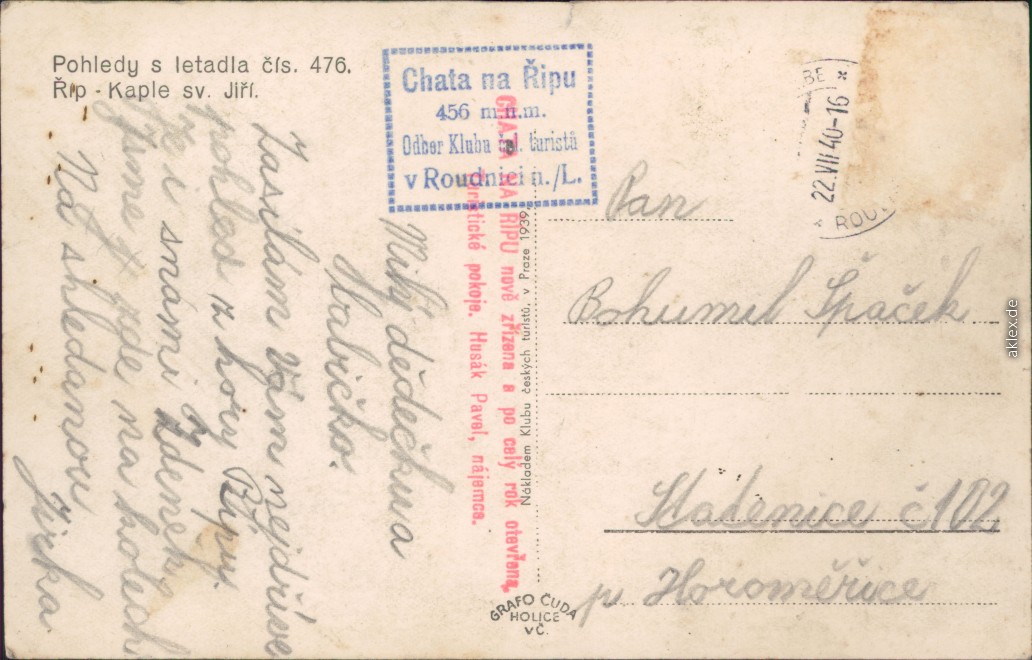 Pohledy s letadla čís. 476.
Říp - Kaple sv. Jiří.
Chata na Řipu
456 m.n.m.
Odbor Klubu turistů
v Roudnici n./L.
CHATA NA ŘIPU nově zřízena a po celý rok otevřena,
turistické pokoje. Husák Pavel, nájemce.
Nákladem Klubu českých turistů, v Praze 1939.
GRAFO ČUDA
HOLICE
VČ.
22.VII 40-16
ROUD
Milý dědečku a
babičko.
Zasílám Vám nejdříve
pohled z hory Řípu.
Je i s námi Zdenek
jsme zde na kolech
Na shledanou
Jirka
Pan
Bohumil Špaček
Statenice č 102
p. Horoměřice
aklex.de